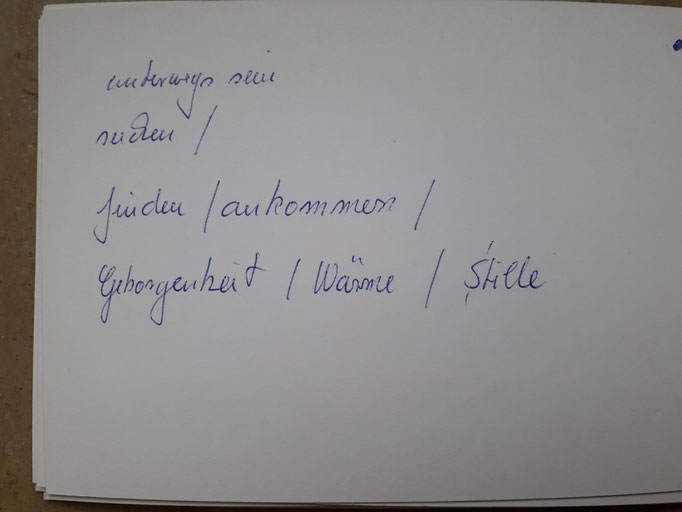 unterwegs sein
suchen /
finden / ankommen /
Geborgenheit / Wärme / Stille